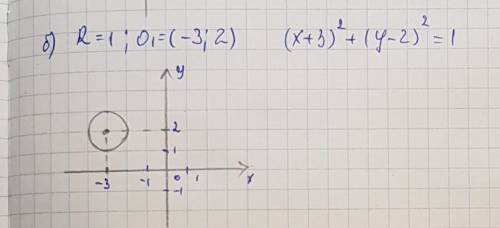 б) R=1 ; O₁=(-3; 2) (x+3)²+(y-2)²=1
y
2
1
-3 -1 0 1 x
-1